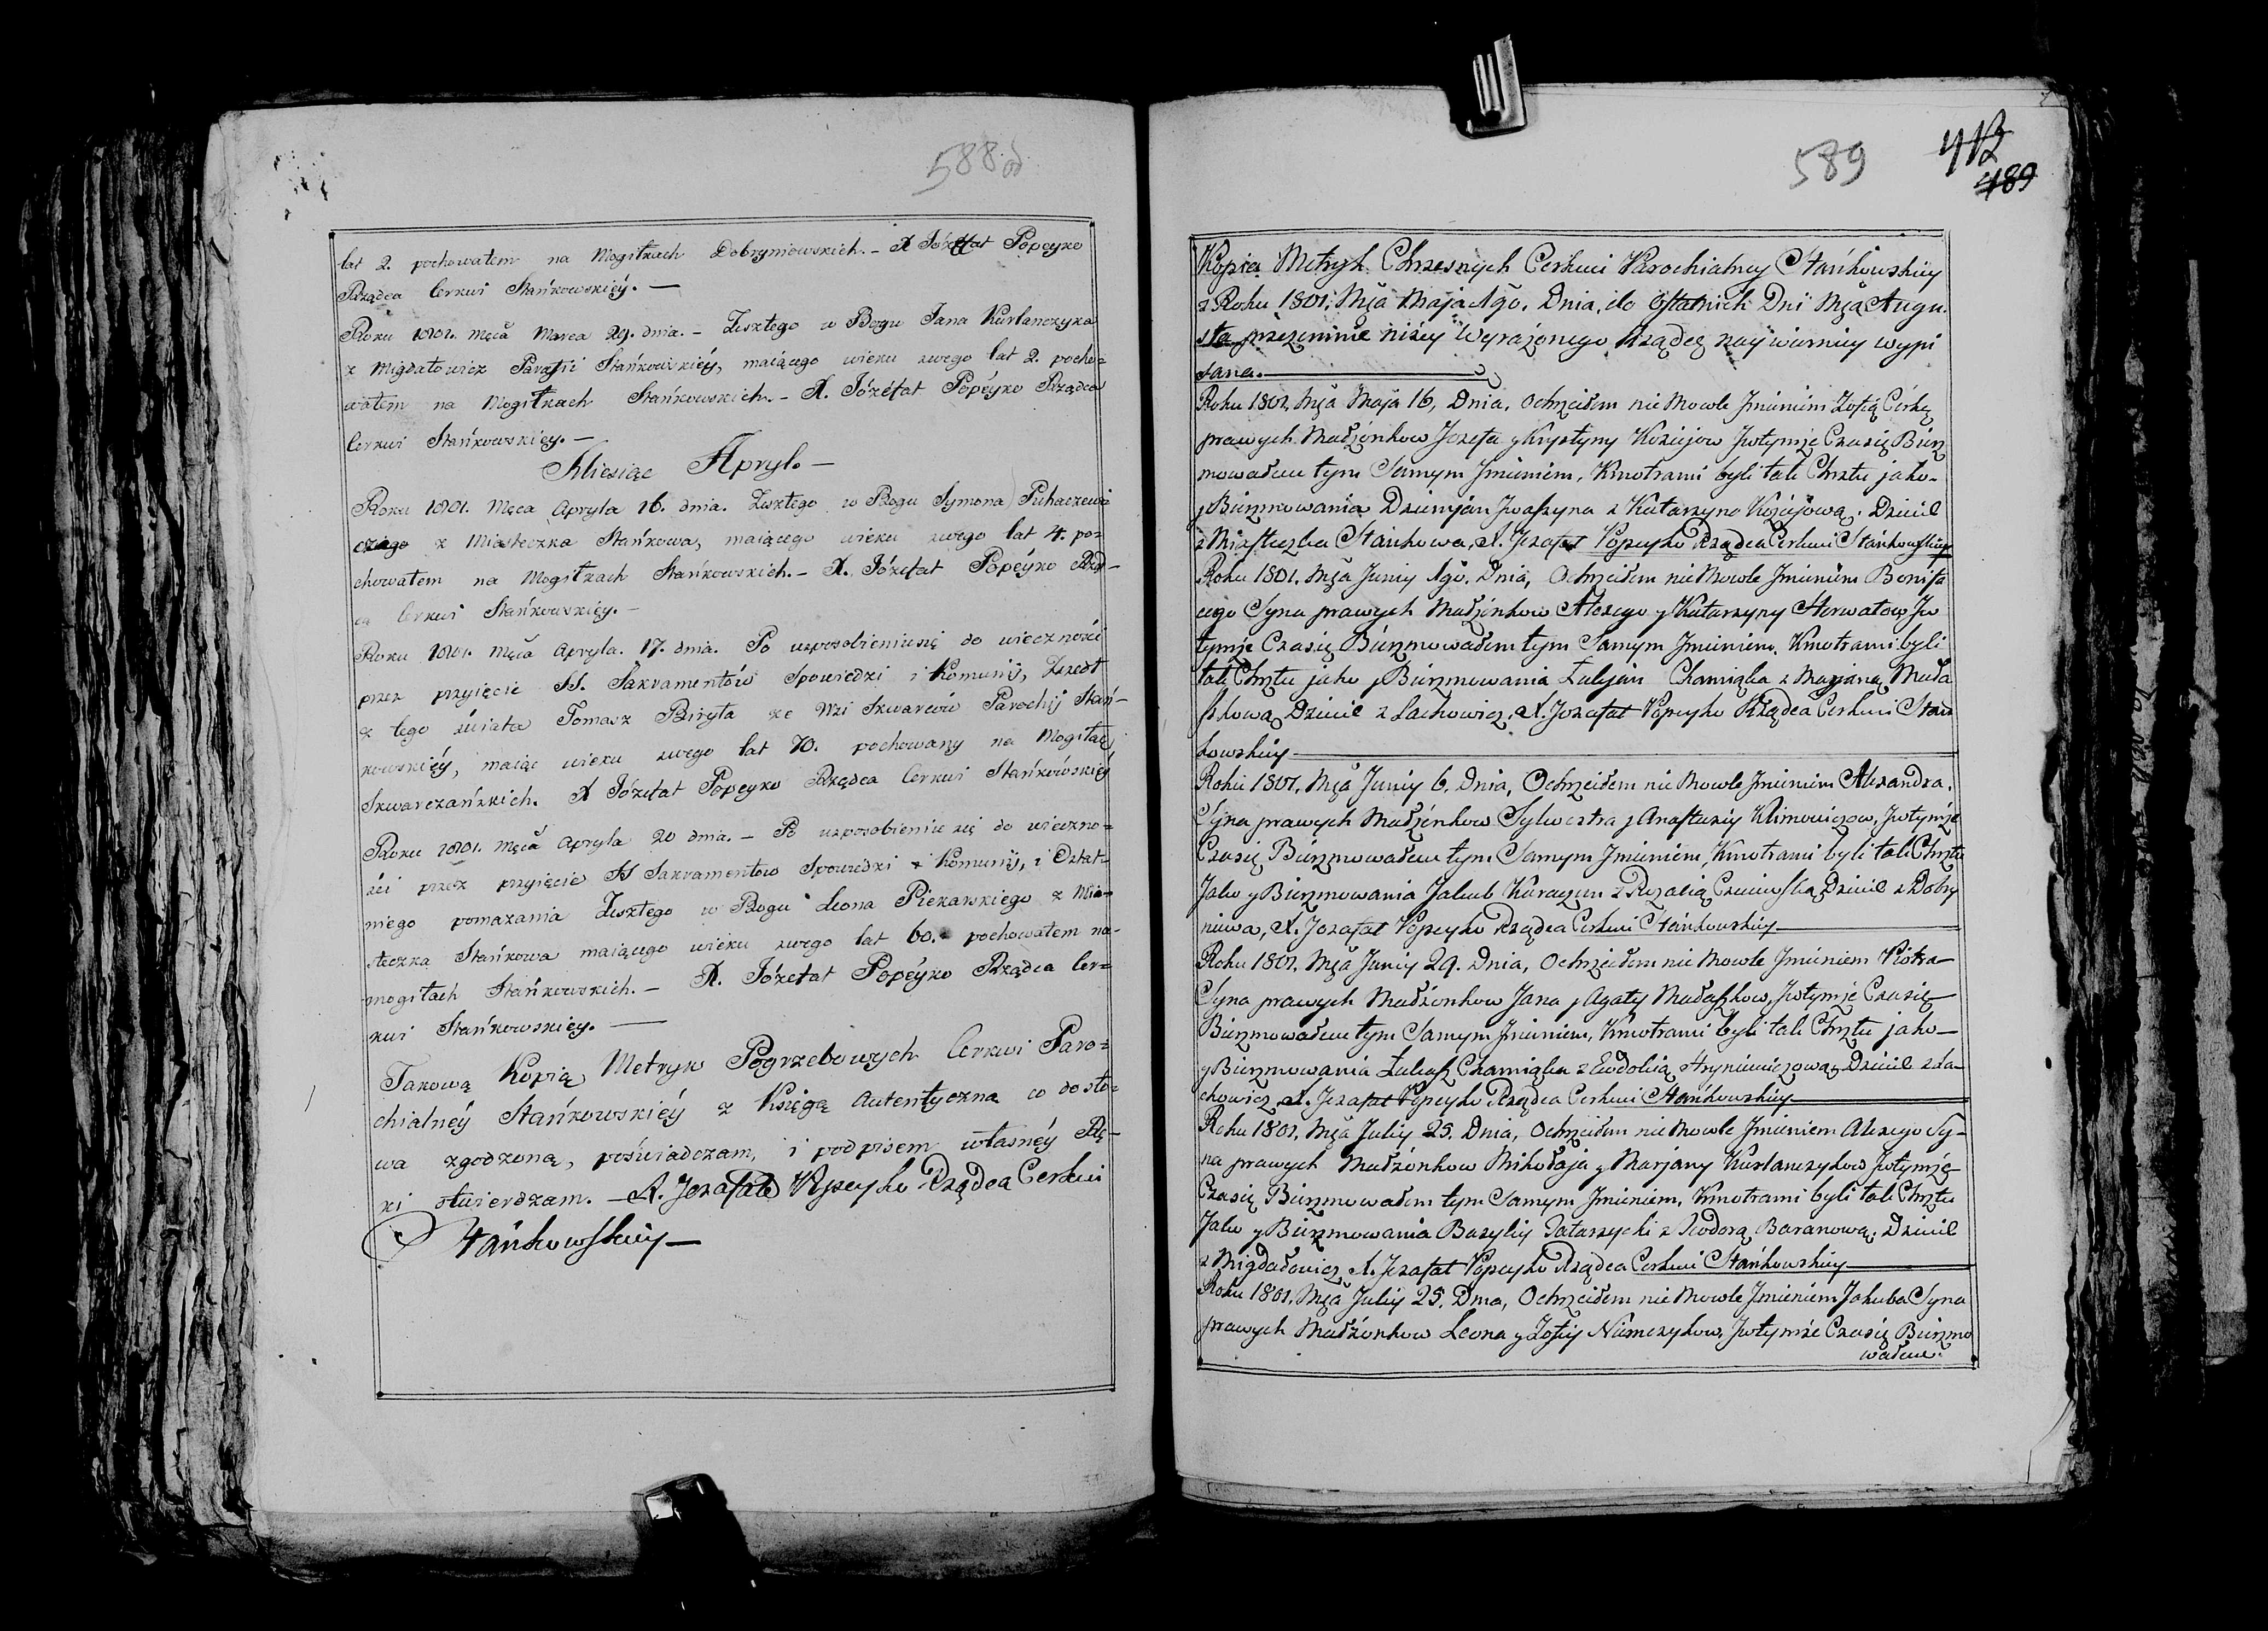 588 od
lat 2. pochowałem na Mogiłkach Dobryniowskich. - X Józefat Popeyko
Rządca Cerkwi Stańkowskiéy. —
Roku 1801. Męca Marca 29. dnia. - Zeszłego w Bogu Jana Kurłanczyka
z Migdałowicz Parafii Stańkowskiéy, maiącego wieku swego lat 2. pocho=
wałem na Mogiłkach Stańkowskich. - X. Józefat Popéyko Rządca
Cerkwi Stańkowskiéy. —
Miesiąc Apryl. —
Roku 1801. Męca Apryla 16. dnia. Zeszłego w Bogu Symona Puhaczewi
czago z Miasteczka Stańkowa, maiącego wieku swego lat 4. po=
chowałem na Mogiłkach Stańkowskich. - X. Józefat Popéyko Rzą-
ca Cerkwi Stańkowskiéy. —
Roku 1801. Męca Apryla. 17. dnia. Po usposobieniu się do wieczności
przez przyięcie SS. Sakramentów Spowiedzi i Komunij, Zszedł
z tego świata Tomasz Biryła ze Wsi Skwarców Parochij Stań-
kowskiéy, maiąc wieku swego lat 70. pochowany na Mogiłac
Skwarczańskich. X Józefat Popeyko Rządca Cerkwi Stańkowskiéy
Roku 1801. Męca Apryla 20 dnia. - Po usposobieniu się do wieczno=
ści przez przyięcie SS Sakramentów Spowiedzi i Komunij, i Ostat-
niego pomazania Zeszłego w Bogu Leona Piekarskiego z Mia=
steczka Stańkowa maiącego wieku swego lat 60. pochowałem na-
mogiłach Stańkowskich. — X. Józefat Popéyko Rządca Cer=
kwi Stańkowskiey. —
Takową Kopią Metryk Pogrzebowych Cerkwi Paro=
chialnéy Stańkowskiéy z Xięgą Autentyczną co do sło=
wa zgodzoną, poświadczam, i podpisem własnéy Rę-
ki stwierdzam. — X. Jozafat Popeyko Rządca Cerkwi
Stańkowskiey —
589
489
Kopia Metryk Chrzesnych Cerkwi Parochialney Stańkowskiey
z Roku 1801. Mca Maja 1go. Dnia, do Ostatnich Dni Mca Augu.
sta przezemnie niżey wyrażonego Rządcę naywierniey wypi
sana.
Roku 1801, Mca Maja 16, Dnia, Ochrzciłem nie Mowle Jmieniem Zofią Córkę
prawych Małżonkow Jozefa y Krystyny Koziejow Jwtymże Czasię Birz
mowałem tym Samym Jmieniem, Kmotrami byli tak Chrztu jako-
y Birzmowania Dziemjan Jwaszyna z Katarzyno Koziejową. Dzieie
z Miasteczka Stańkowa, X. Jozafat Popeyko Rządca Cerkwi Stańkowskiey
Roku 1801. Mca Juniy 1go. Dnia, Ochrzciłem nie Mowle Jmieniem Bonifa
cego Syna prawych Małżonkow Alexego y Katarzyny Horwatow Jw
tymże Czasię Birzmowałem tym Samym Jmieniem, Kmotrami byli
tak Chrztu jako y Birzmowania Łukjan Chamiąka z Marjaną Mała
szkową Dzieie z Lachowicz, X. Jozafat Popeyko Rządca Cerkwi Stań
kowskiey
Roku 1801, Mca Juniy 6, Dnia, Ochrzciłem nie Mowle Jmieniem Alexandra,
Syna prawych Małżonkow Sylwestra y Anastazij Klimowiczow, Jwtymże
Czasię Birzmowałem tym Samym Jmieniem, Kmotrami byli tak Chrztu
Jako y Birzmowania Jakub Karaczun z Rozalią Czaiewską Dzieie z Dobry
niewa, X. Jozafat Popeyko Rządca Cerkwi Stańkowskiey
Roku 1801, Mca Juniy 29. Dnia, Ochrzciłem nie Mowle Jmieniem Piotra
Syna prawych Małżonkow Jana y Agaty Małaszkow, Jwtymże Czasię
Birzmowałem tym Samym Jmieniem, Kmotrami byli tak Chrztu jako-
y Birzmowania Łukasz Chamiąka z Ewdokią Hryniewiczową Dzieie z La-
chowicz, X. Jozafat Popeyko Rządca Cerkwi Stańkowskiey
Roku 1801, Mca Juliy 25. Dnia, Ochrzciłem nie Mowle Jmieniem Alexego Sy-
na prawych Małżonkow Mikołaja y Marjany Kurłanczykow Jwtymże
Czasię Birzmowałem tym Samym Jmieniem, Kmotrami byli tak Chrztu
Jako y Birzmowania Bazyliy Tatarzycki z Teodorą Baranową, Dzieie
z Migdałowicz, X. Jozafat Popeyko Rządca Cerkwi Stańkowskiey
Roku 1801, Mca Juliy 25. Dnia, Ochrzciłem nie Mowle Jmieniem Jakuba Syna
prawych Małżonkow Leona y Zofiy Niemczykow, Jwtymże Czasię Birzmo
wałem.